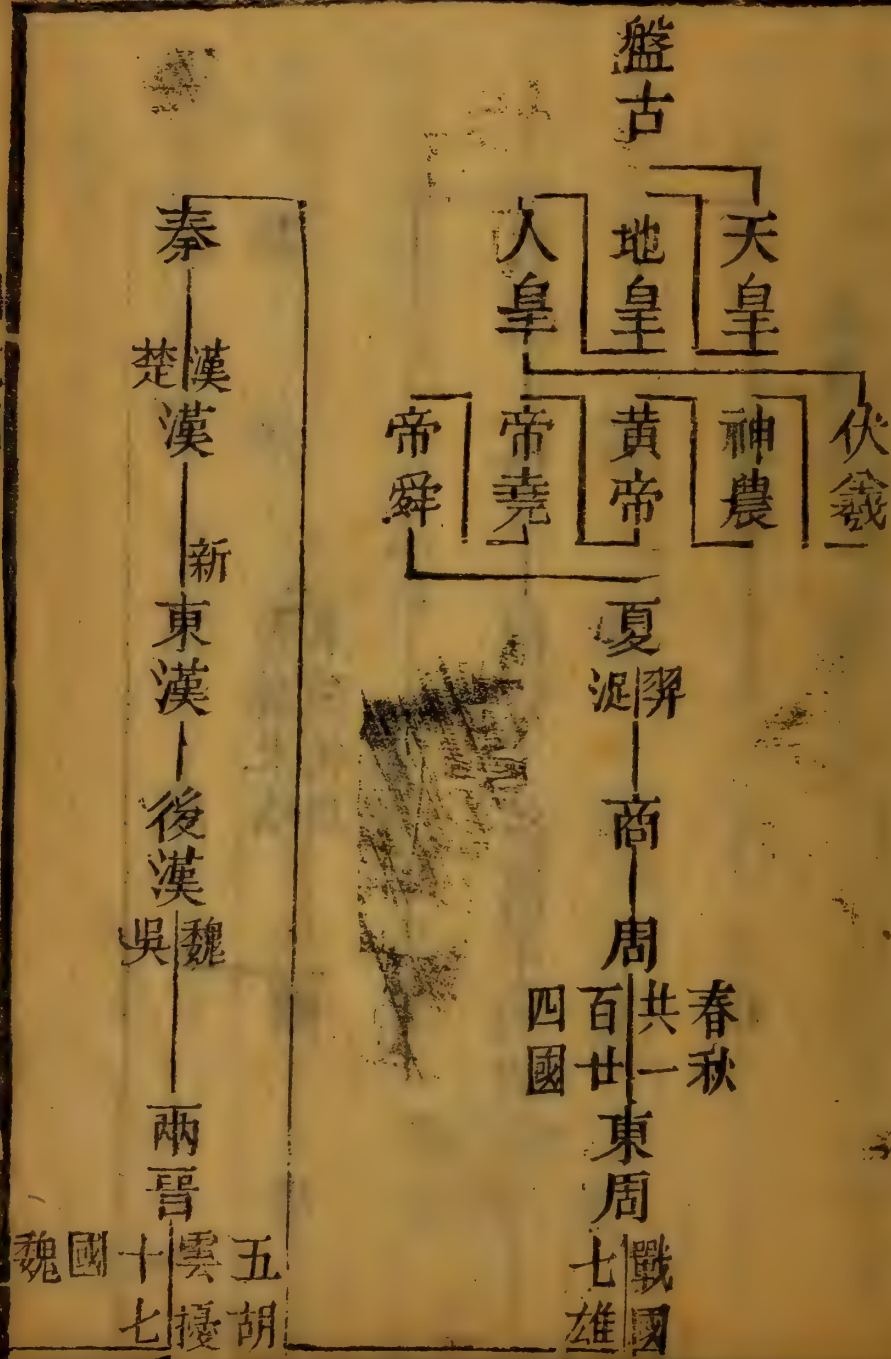 盤古
天皇
地皇
人皇
伏羲
神農
黃帝
帝堯
帝舜
夏
羿
浞
商
周
春秋
共一
百廿
四國
東周
戰國
七雄
秦
漢
楚
漢
新
東漢
後漢
魏
吳
兩晉
五胡
雲擾
十七
國
魏